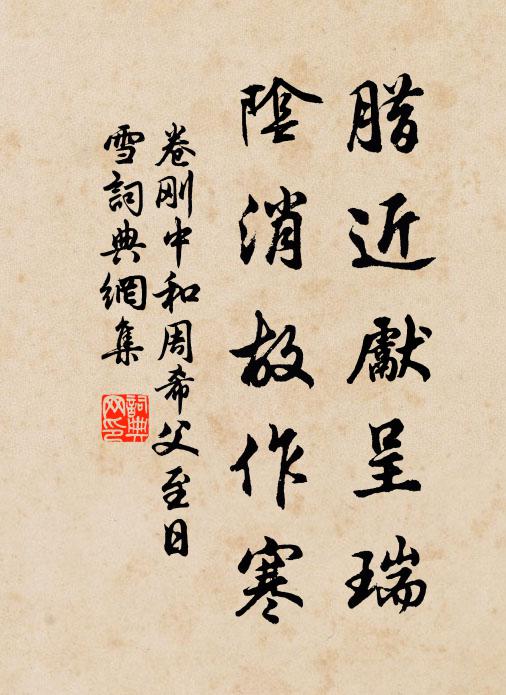 腊近獻呈瑞
陰消故作寒
卷刚中和周希父至日
雪詞典網集
詞典網印